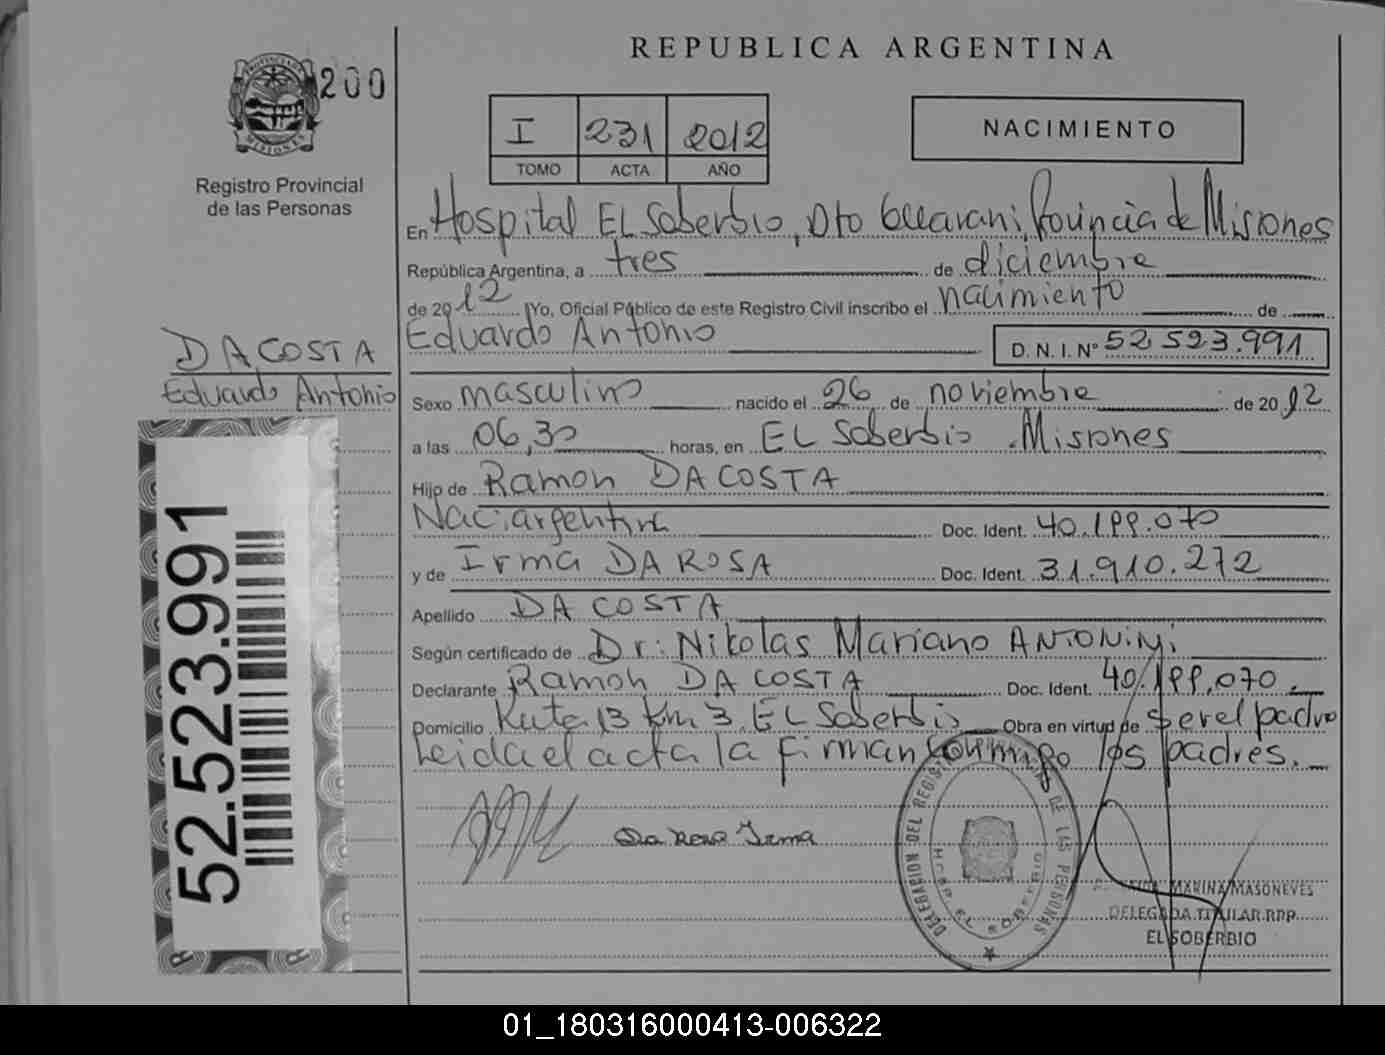 REPUBLICA ARGENTINA
PROVINCIA DE MISIONES
200
Registro Provincial
de las Personas
I 231 2012
TOMO ACTA AÑO
NACIMIENTO
En Hospital EL Soberbio, Dto Guarani, Provincia de Misiones
República Argentina, a tres de diciembre
de 2012 Yo, Oficial Público de este Registro Civil inscribo el nacimiento de
Eduardo Antonio D.N.I. Nº 52 523.991
DA COSTA
Eduardo Antonio
Sexo masculino nacido el 26 de noviembre de 2012
a las 06,30 horas, en EL Soberbio . Misiones
Hijo de Ramon DA COSTA
Nac: argentina Doc. Ident. 40.199.070
y de Irma DA ROSA Doc. Ident. 31.910.272
Apellido DA COSTA
Según certificado de Dr: Nikolas Mariano ANTONINI
Declarante Ramon DA COSTA Doc. Ident. 40.199.070.
Domicilio Ruta 13 Km 3, EL Soberbio Obra en virtud de ser el padre
Leida el acta la firman conmigo los padres.
52.523.991
Da Rosa Irma
DELEGACION DEL REGISTRO DE LAS PERSONAS
HOSP. EL SOBERBIO
MARINA MASONEVES
DELEGADA TITULAR RPP
EL SOBERBIO
01_180316000413-006322